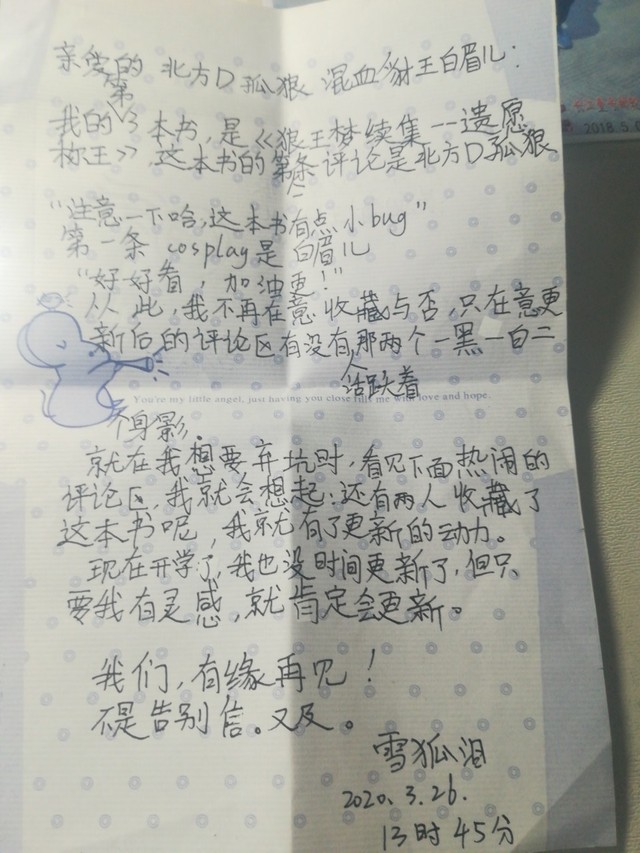 亲爱的 北方D孤狼 混血豺王白眉儿：
我的第3本书，是《狼王梦续集--遗愿
称王》，这本书的第一条评论是北方D孤狼
“注意一下哈，这本书有点小bug”
第一条 cosplay是 白眉儿
“好好看，加油更！”
从此，我不再在意收藏与否，只在意更
新后的评论区有没有那两个一黑一白二
人
活跃着
You're my little angel, just having you close fills me with love and hope.
个身影.
就在我想要弃坑时，看见下面热闹的
评论区，我就会想起：还有两人收藏了
这本书呢，我就有了更新的动力。
现在开学了，我也没时间更新了，但只
要我有灵感，就肯定会更新。
我们，有缘再见！
不是告别信。又及。
雪狐泪
2020.3.26.
13时45分
2018.5.